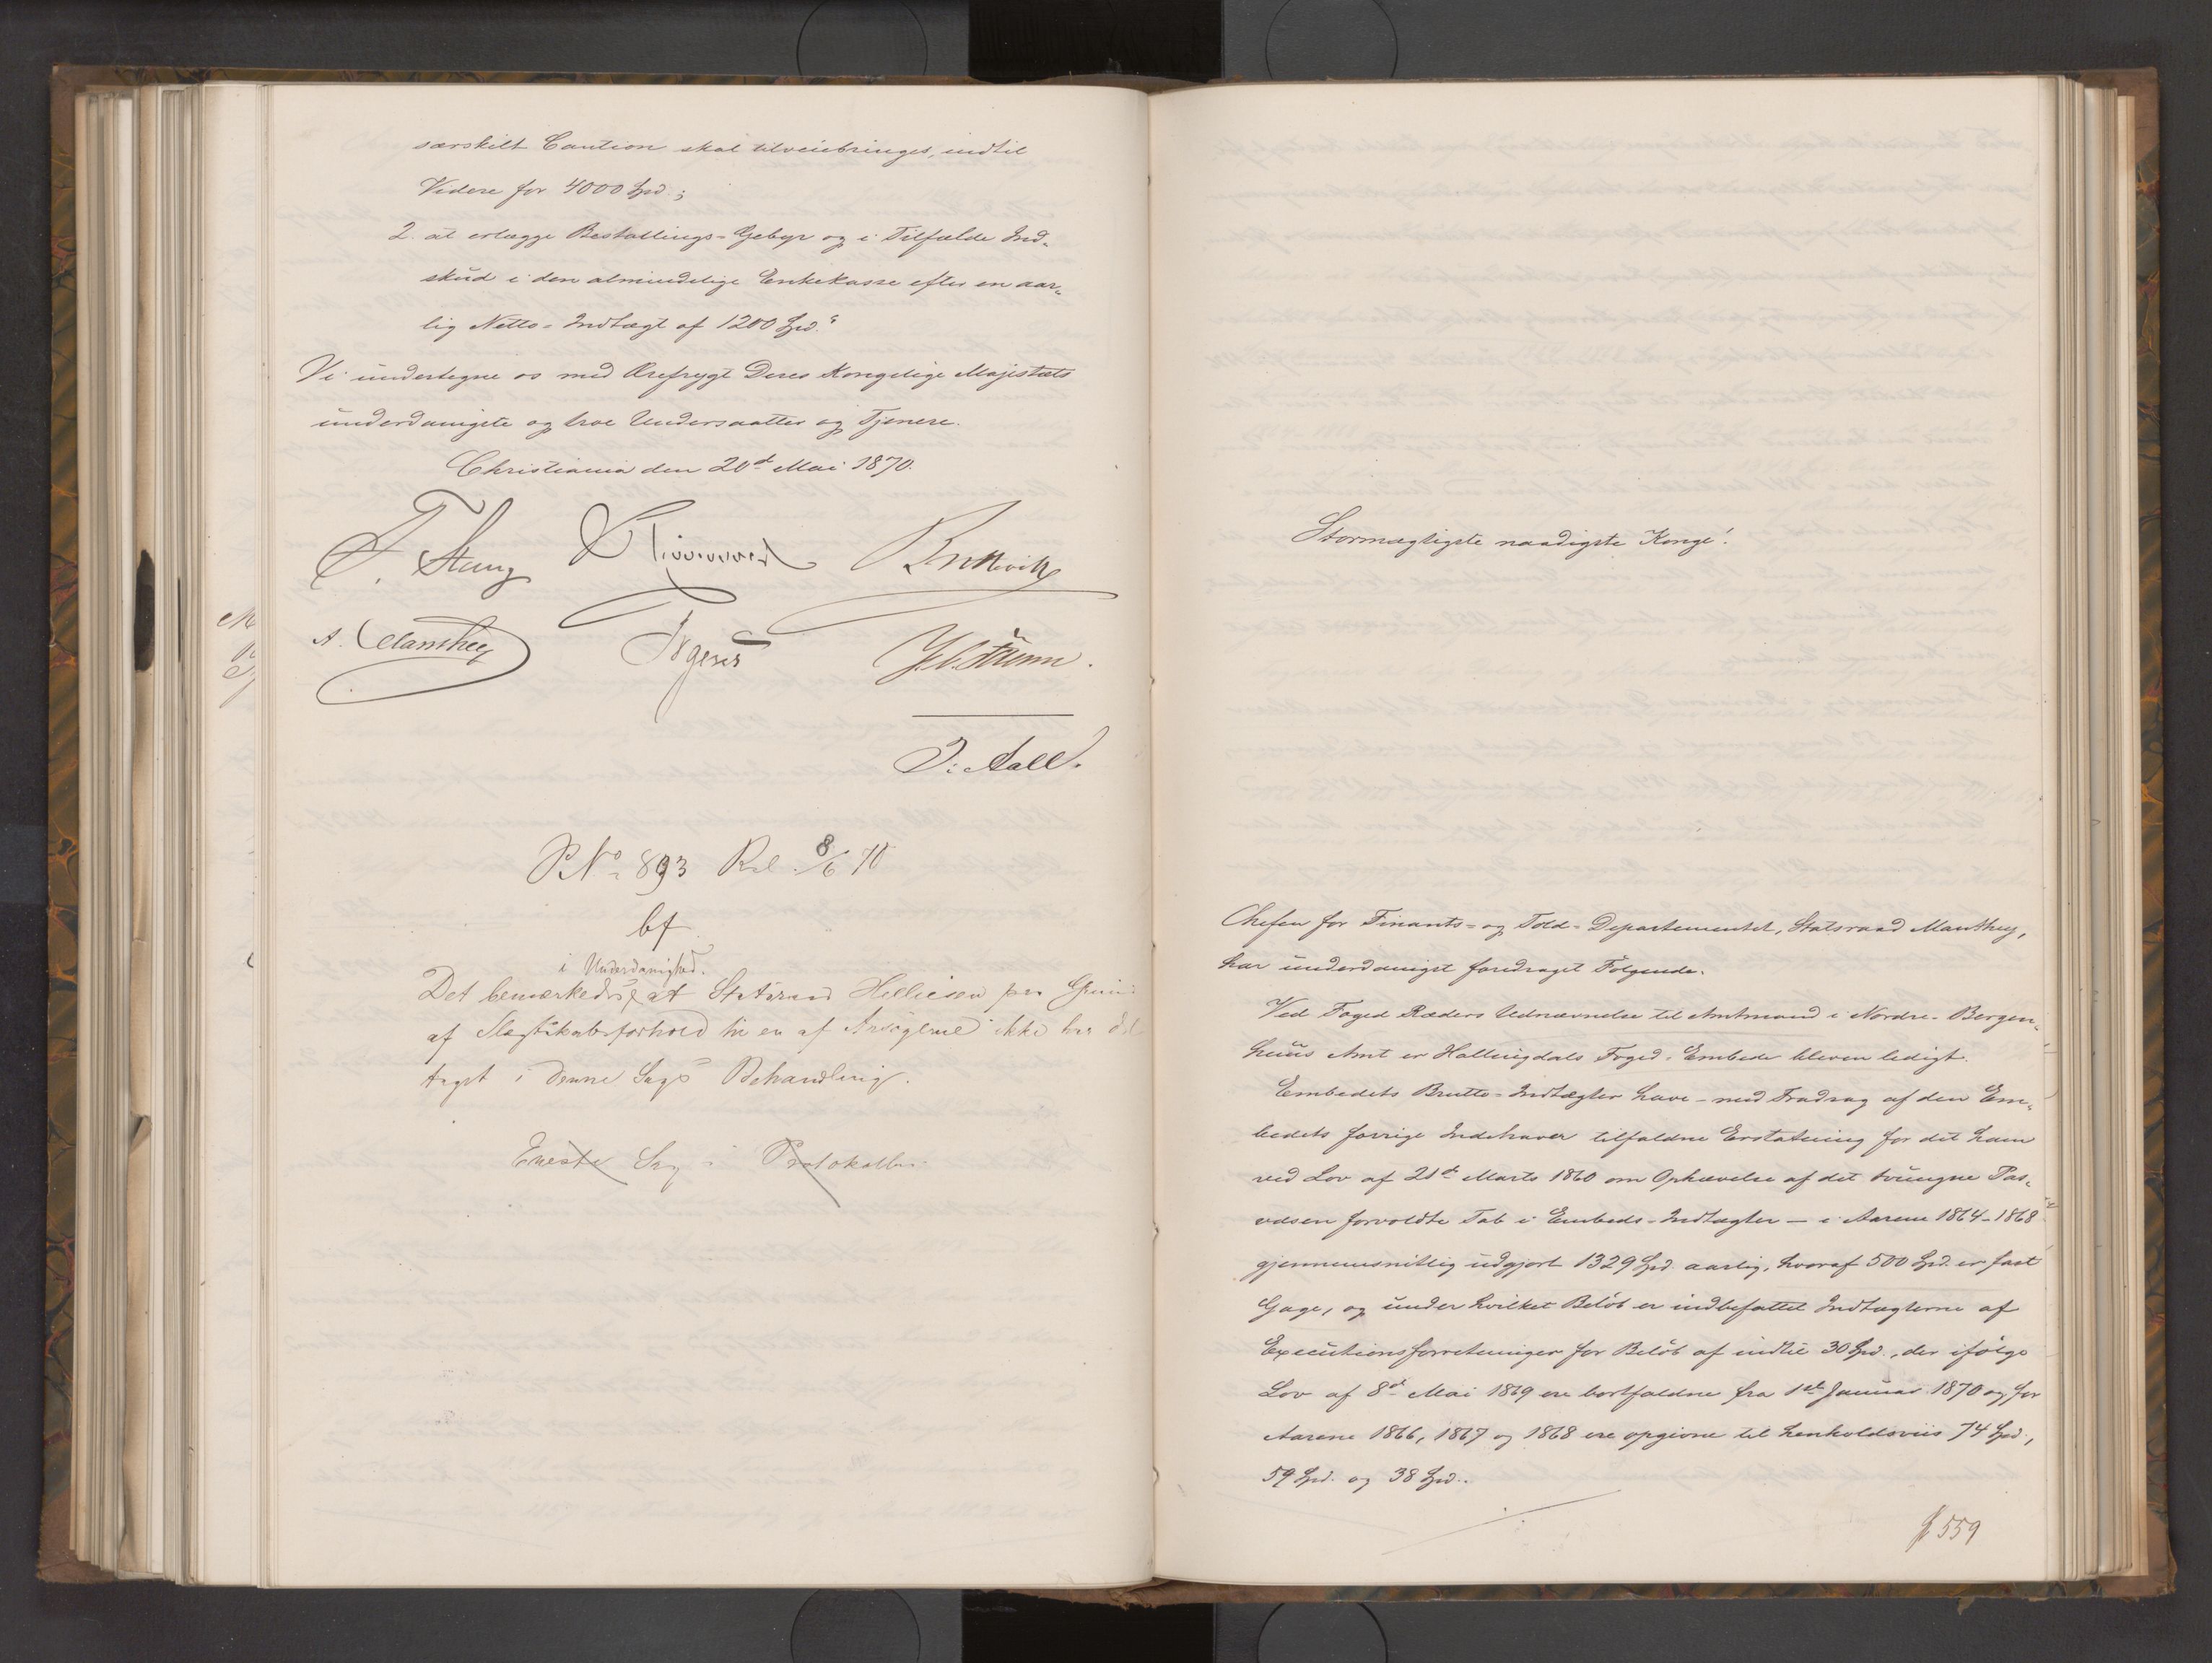 særskilt Caution skal tilveiebringes, indtil
Videre for 4000 Spd.;
2. at erlægge Bestallings-Gebyr og i Tilfælde Ind-
skud i den almindelige Enkekasse efter en aar-
lig Netto-Indtægt af 1200 Spd."
Vi undertegne os med Ærefrygt Deres Kongelige Majestæts
underdanigste og troe Undersaatter og Tjenere.
Christiania den 20d Mai 1870.
F. Stang
A. Manthey Irgens
J. Aall.
P.No 893 Rel. 8/6 70
bf
i Underdanighed.
Det bemærkedes, at Statsraad Helliesen paa Grund
af Slægtskabsforhold til en af Ansøgerne ikke har del-
taget i denne Sags Behandling.
Eneste Sag i Protokollen
Stormægtigste naadigste Konge!
Chefen for Finants- og Told-Departementet, Statsraad Manthey,
har underdanigst foredraget Følgende.
Ved Foged Ræders Udnævnelse til Amtmand i Nordre-Bergen-
huus Amt er Hallingdals Foged-Embede bleven ledigt.
Embedets Brutto-Indtægter have - med Fradrag af den Em-
bedets forrige Indehaver tilfaldne Erstatning for det ham
ved Lov af 21d Marts 1860 om Ophævelse af det tvungne Pas-
væsen forvoldte Tab i Embeds-Indtægter — i Aarene 1864-1868
gjennemsnitlig udgjort 1329 Spd. aarlig, hvoraf 500 Spd. er fast
Gage, og under hvilket Beløb er indbefattet Indtægterne af
Executionsforretninger for Beløb af indtil 30 Spd., der ifølge
Lov af 8d Mai 1869 ere bortfaldne fra 1ste Januar 1870 og for
Aarene 1866, 1867 og 1868 ere opgivne til henholdsviis 74 Spd.,
59 Spd. og 38 Spd..
559